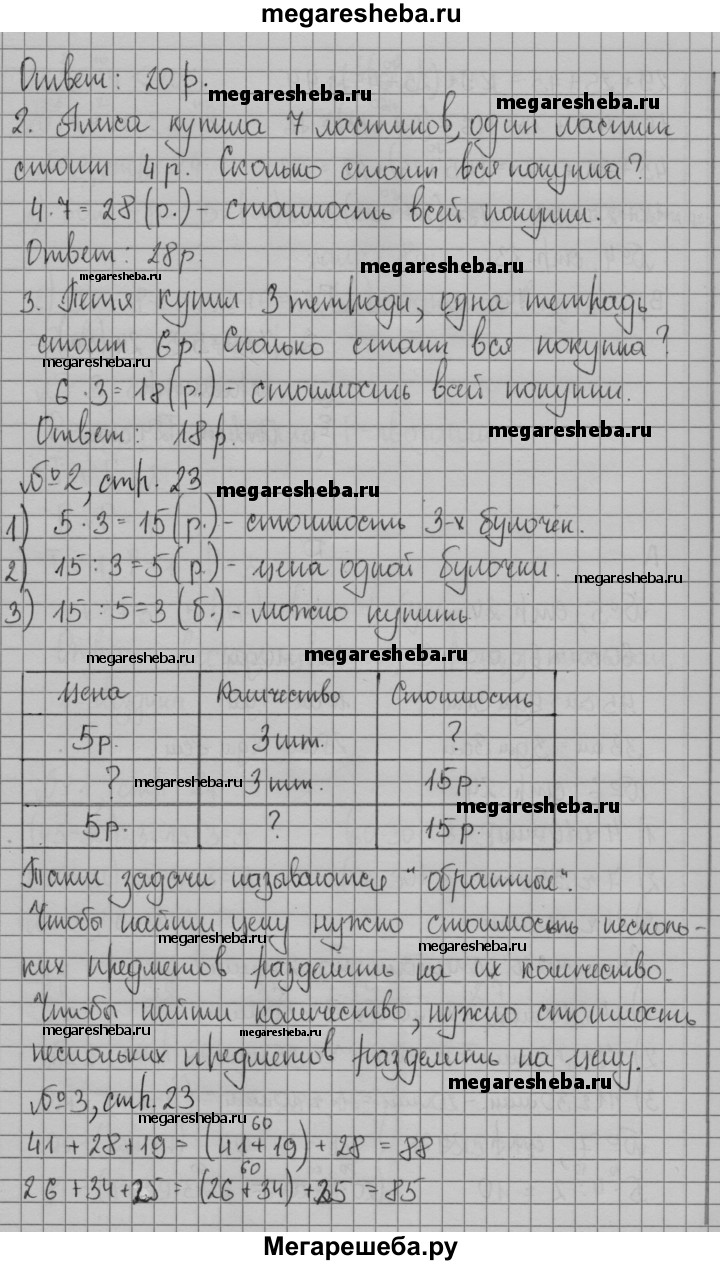 megaresheba.ru
Ответ: 20 р.
megaresheba.ru
megaresheba.ru
2. Алиса купила 7 ластиков, один ластик
стоит 4 р. Сколько стоит вся покупка?
4 · 7 = 28 (р.) - стоимость всей покупки.
Ответ: 28 р.
megaresheba.ru
megaresheba.ru
3. Петя купил 3 тетради, одна тетрадь
стоит 6 р. Сколько стоит вся покупка?
megaresheba.ru
6 · 3 = 18 (р.) - стоимость всей покупки.
Ответ: 18 р.
megaresheba.ru
№2, стр. 23
megaresheba.ru
1) 5 · 3 = 15 (р.) - стоимость 3-х булочек.
2) 15 : 3 = 5 (р.) - цена одной булочки.
megaresheba.ru
3) 15 : 5 = 3 (б.) - можно купить
megaresheba.ru
megaresheba.ru
Цена Количество Стоимость
5 р. 3 шт. ?
? 3 шт. 15 р.
megaresheba.ru
megaresheba.ru
5 р. ? 15 р.
Такие задачи называются "обратные".
Чтобы найти цену нужно стоимость несколь-
megaresheba.ru
megaresheba.ru
ких предметов разделить на их количество.
Чтобы найти количество, нужно стоимость
megaresheba.ru
megaresheba.ru
нескольких предметов разделить на цену.
megaresheba.ru
№3, стр. 23
megaresheba.ru
60
41 + 28 + 19 = (41 + 19) + 28 = 88
60
26 + 34 + 25 = (26 + 34) + 25 = 85
Мегарешеба.ру